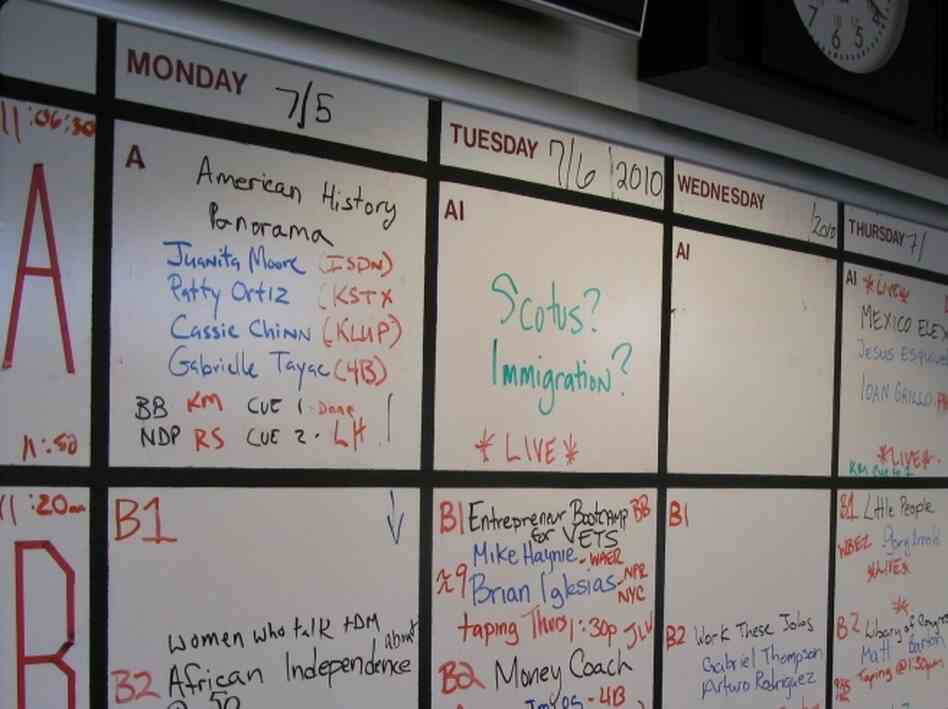 7 6 5
MONDAY 7/5
TUESDAY 7/6 2010
WEDNESDAY
THURSDAY 7/
11:06:30
A
11:50
A
American History
Panorama
Juanita Moore (ISDN)
Patty Ortiz (KSTX
Cassie Chinn (KLUP)
Gabrielle Tayac (4B)
BB KM CUE 1 - Done
NDP RS CUE 2 - LH
AI
Scotus?
Immigration?
* LIVE *
AI
AI
*LIVE*
MEXICO ELE
JESUS
IOAN GRILLO
*LIVE*
11:20am
B
B1
Women who talk TDM
B2 African Independence about
@ 50
B1 Entrepreneur Bootcamp BB
for VETS
Mike Haynie - WAER
Brian Iglesias - NPR
NYC
taping Thurs 1:30p JLV
B2 Money Coach
- 4B
B1
B2 Work These Jobs
Gabriel Thompson
Arturo Rodriguez
B1 Little People
WBEZ
*LIVE*
B2 Libary of
Matt
Taping @ 1:30pm